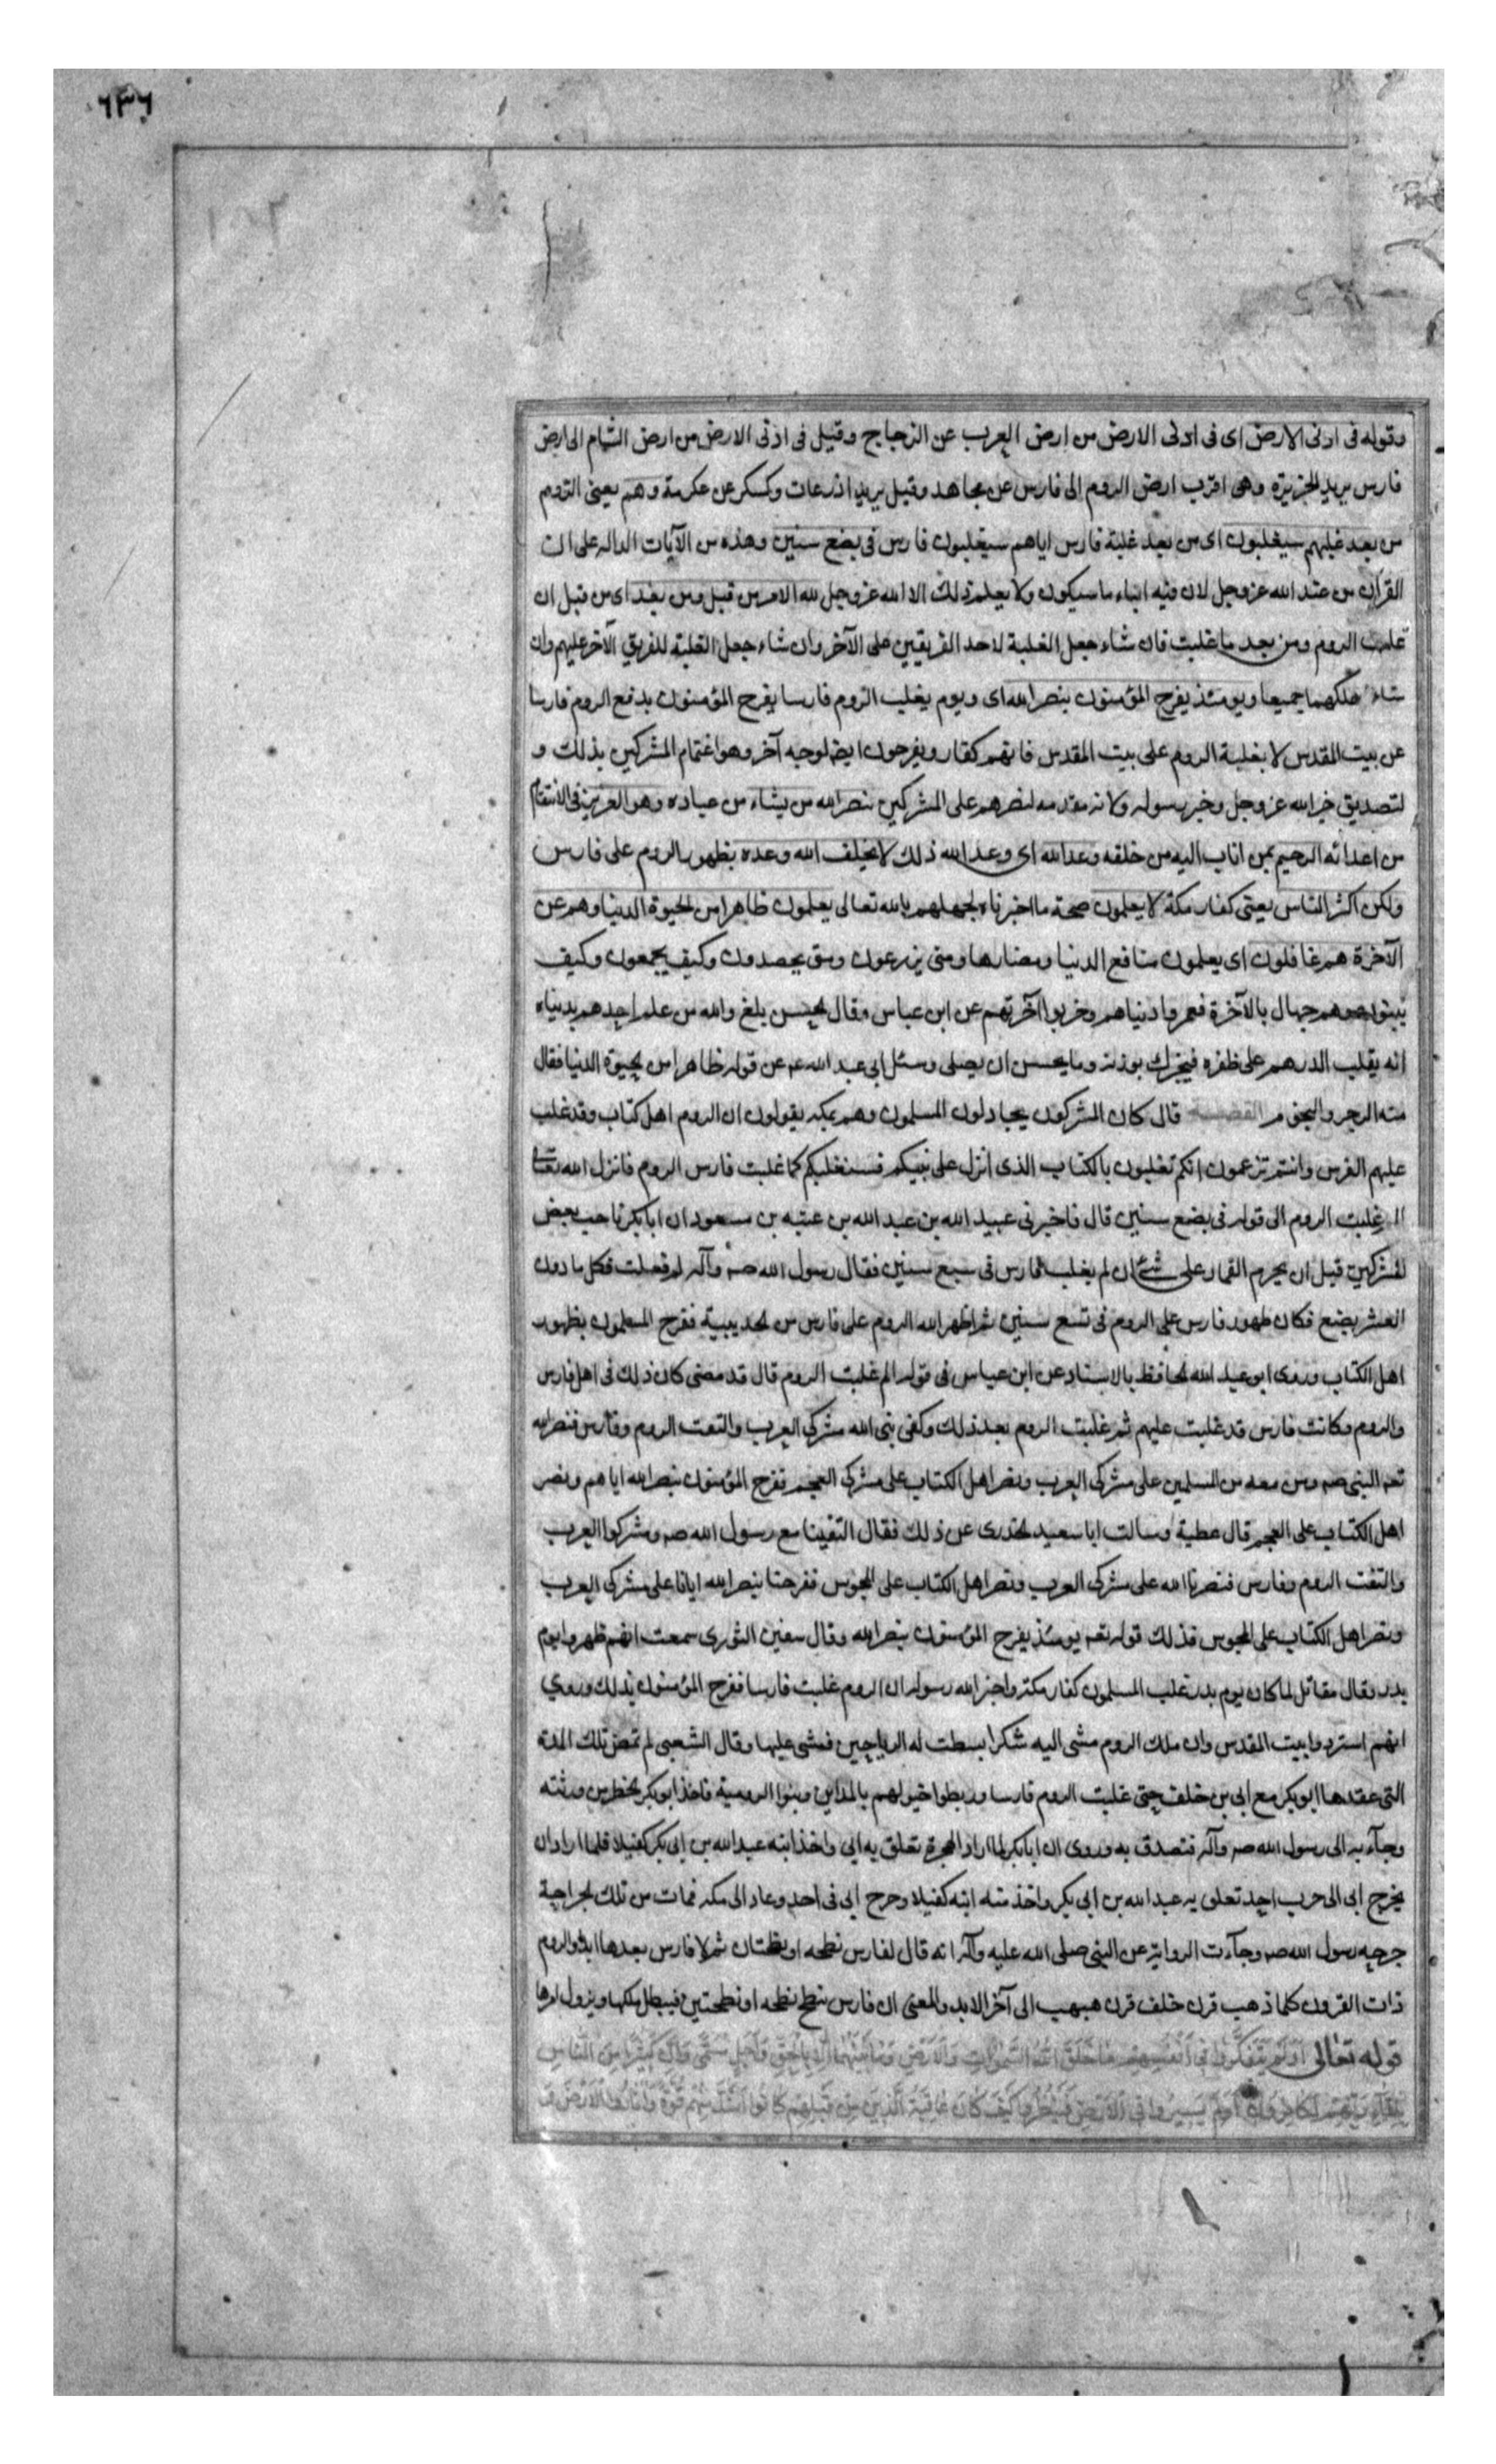 ٦٣٦
وقوله فى ادنى الارض اى فى ادنى الارض من ارض العرب عن الزجاج وقيل فى ادنى الارض من ارض الشام الى ارض
فارس يريد الجزيرة وهى اقرب ارض الروم الى فارس عن مجاهد وقيل يريد اذرعات وكسكر عن عكرمة وهم يعنى الروم
من بعد غلبهم سيغلبون اى من بعد غلبة فارس اياهم سيغلبون فارس فى بضع سنين وهذه من الآيات الداله على ان
القرآن من عند الله عز وجل لان فيه انباء ما سيكون ولا يعلم ذلك الا الله عز وجل لله الامر من قبل ومن بعد اى من قبل ان
غلبت الروم ومن بعد ما غلبت فان شاء جعل الغلبة لاحد الفريقين على الآخر وان شاء جعل الغلبة للفريق الآخر عليهم وان
شاء هلكهما جميعا ويومئذ يفرح المؤمنون بنصر الله اى ويوم يغلب الروم فارسا يفرح المؤمنون بدفع الروم فارسا
عن بيت المقدس لا بغلبة الروم على بيت المقدس فانهم كفار ويفرحون ايضا لوجه آخر وهو اغتمام المشركين بذلك و
لتصديق خبر الله عز وجل وخبر رسوله ولانه مقدمه لنصرهم على المشركين بنصر الله من يشاء من عباده وهو العزيز فى الانتقام
من اعدائه الرحيم بمن اناب اليه من خلقه وعد الله اى وعد الله ذلك لا يخلف الله وعده بظهور الروم على فارس
ولكن اكثر الناس يعنى كفار مكة لا يعلمون صحة ما اخبرناه لجهلهم بالله تعالى يعلمون ظاهرا من الحيوة الدنيا وهم عن
الآخرة هم غافلون اى يعلمون منافع الدنيا ومضارها ومتى يزرعون ومتى يحصدون وكيف يجمعون وكيف
يبنون وهم جهال بالآخرة فعمروا دنياهم وخربوا آخرتهم عن ابن عباس وقال الحسن بلغ والله من علم احدهم بدنياه
انه يقلب الدرهم على ظفره فيخبرك بوزنه وما يحسن ان يصلى وسئل ابى عبد الله عم عن قوله ظاهرا من الحيوة الدنيا فقال
منه الزجر والنجوم القصة قال كان المشركون يجادلون المسلمون وهم بمكة يقولون ان الروم اهل كتاب وقد غلب
عليهم الفرس وانتم تزعمون انكم تغلبون بالكتاب الذى انزل على نبيكم فسنغلبكم كما غلبت فارس الروم فانزل الله تعالى
الم غلبت الروم الى قوله فى بضع سنين قال فاخبرنى عبيد الله بن عبد الله بن عتبه بن مسعود ان ابا بكر ناحب بعض
المشركين قبل ان يحرم القمار على شئ ان لم يغلب فارس فى سبع سنين فقال رسول الله صه وآله لم فعلت فكل ما دون
العشر بضع فكان ظهور فارس على الروم فى تسع سنين ثم اظهر الله الروم على فارس من الحديبية ففرح المسلمون بظهور
اهل الكتاب وروى ابو عبد الله الحافظ بالاسناد عن ابن عباس فى قوله الم غلبت الروم قال قد مضى كان ذلك فى اهل فارس
والروم وكانت فارس قد غلبت عليهم ثم غلبت الروم بعد ذلك وكفى نبى الله مشركى العرب والتقت الروم وفارس فنصر الله
تعه النبى صه ومن معه من المسلمين على مشركى العرب ونصر اهل الكتاب على مشركى العجم ففرح المؤمنون بنصر الله اياهم ونصر
اهل الكتاب على العجم قال عطية وسالت ابا سعيد الخدرى عن ذلك فقال التقينا مع رسول الله صه ومشركوا العرب
والتقت الروم وفارس فنصرنا الله على مشركى العرب ونصر اهل الكتاب على المجوس ففرحنا بنصر الله ايانا على مشركى العرب
ونصر اهل الكتاب على المجوس فذلك قوله تعه يومئذ يفرح المؤمنون بنصر الله وقال سفين الثورى سمعت انهم ظهروا يوم
بدر وقال مقاتل لما كان يوم بدر غلب المسلمون كفار مكة واخبر الله رسوله ان الروم غلبت فارسا ففرح المؤمنون بذلك وروي
انهم استردوا بيت المقدس وان ملك الروم مشى اليه شكرا بسطت له الرياحين فمشى عليها وقال الشعبى لم تمض تلك المدة
التى عقدها ابو بكر مع ابى بن خلف حتى غلبت الروم فارسا وربطوا خيولهم بالمداين وبنوا الرومية فاخذ ابو بكر الخطر من ورثته
وجآء به الى رسول الله صه وآله فتصدق به وروى ان ابا بكر لما اراد الهجرة تعلق به ابي واخذ ابنه عبد الله بن ابى بكر كفيلا فلما اراد ان
يخرج ابى الى حرب احد تعلق به عبد الله بن ابى بكر واخذ منه ابنه كفيلا وجرح ابى فى احد وعاد الى مكه فمات من تلك الجراحة
جرحه رسول الله صه وجآءت الرواية عن النبى صلى الله عليه وآله انه قال لفارس نطحه او نطحتان ثم لا فارس بعدها ابدا والروم
ذات القرون كلما ذهب قرن خلف قرن هبهب الى آخر الابد والمعنى ان فارس تنطح نطحه او نطحتين فيبطل ملكها ويزول امرها
قوله تعالى اَوَلَمْ يَتَفَكَّرُوا فى اَنْفُسِهِمْ مَا خَلَقَ اللهُ السَّمٰوَاتِ وَالْاَرْضَ وَمَا بَيْنَهُمَا اِلَّا بِالْحَقِّ وَاَجَلٍ مُسَمًّى وَاِنَّ كَثِيرًا مِنَ النَّاسِ
بِلِقَآءِ رَبِّهِمْ لَكَافِرُونَ اَوَلَمْ يَسِيرُوا فِى الْاَرْضِ فَيَنْظُرُوا كَيْفَ كَانَ عَاقِبَةُ الَّذِينَ مِنْ قَبْلِهِمْ كَانُوا اَشَدَّ مِنْهُمْ قُوَّةً وَاَثَارُوا الْاَرْضَ وَ